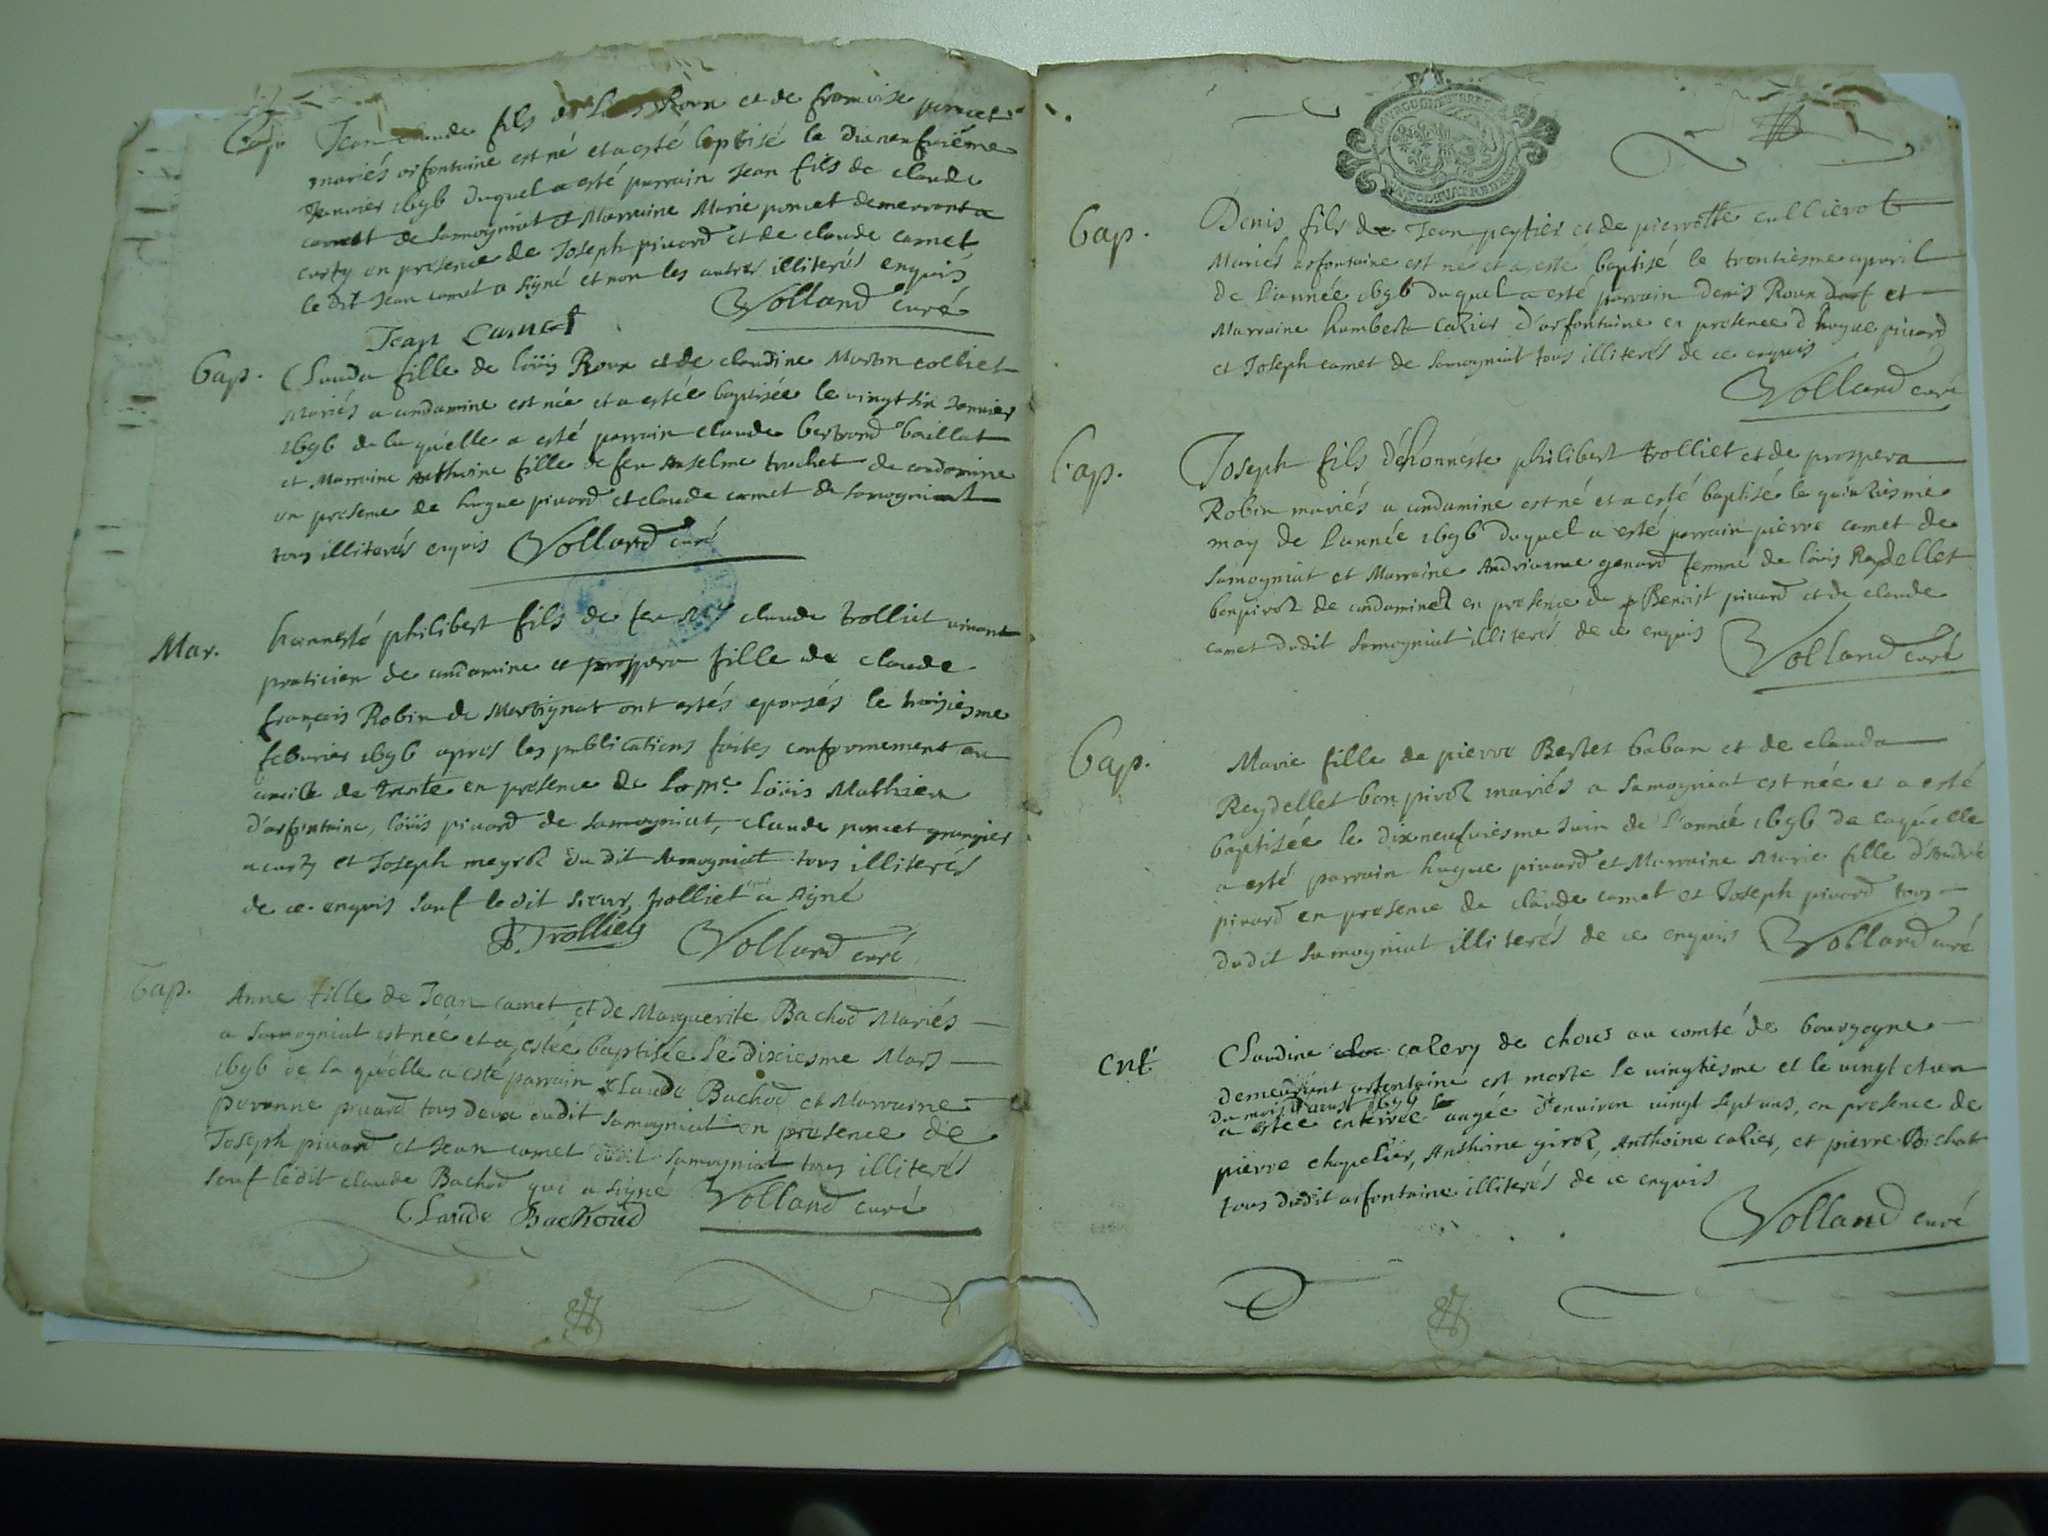 Bap. Jean Claude fils de Louis Roux et de francoise poncet
mariés arfontaine est né et a esté baptisé le dixneufvieme
Janvier 1696 duquel a esté parrain Jean fils de claude
camet de Samogniat et Marraine Marie poncet demeurant a
curty en presence de Joseph pivard et de claude camet
le dit Jean camet a signé et non les autres illiterés enquis
Jean Camet Volland curé
Bap. Clauda fille de löuis Roux et de claudine Martin colliet
Mariés a condamine est née et a estée baptisée le vingt six Janvier
1696 de la quelle a esté parrain claude bertrand baillat
et Marraine Anthoine fille de feu Anselme truchet de condamine
en presence de hugue pivard et claude camet de samogniat
tous illiterés enquis Volland curé
Mar. honnesté philibert fils de feu claude trolliet vivant
praticien de condamine et prospera fille de claude
françois Robin de Martignat ont estés epousés le troisiesme
febvrier 1696 apres les publications faites conformement au
concile de trente en presence de Löuis Mathieu
d'arfontaine, löuis pivard de samogniat, claude poncet grangier
a curty et Joseph meyroz du dit samogniat tous illiterés
de ce enquis sauf le dit sieur trolliet qui a signé
P. Trolliet Volland curé
Bap. Anne fille de Jean camet et de Marguerite Bachod Mariés
a samogniat est née et a estée baptisée le dixiesme Mars
1696 de la quelle a esté parrain Claude Bachod et Marraine
peronne pivard tous deux dudit samogniat en presence de
Joseph pivard et Jean camet dudit samogniat tous illiterés
sauf ledit claude Bachod qui a signé Volland curé
Claude Bachoud
Bap. Denis fils de Jean peytier et de pierrotte cullierot
Mariés arfontaine est né et a esté baptisé le trentiesme apvril
de l'année 1696 duquel a esté parrain denis Roux et
Marraine humberte calier d'arfontaine en presence d'hugue pivard
et Joseph camet de samogniat tous illiterés de ce enquis
Volland curé
Bap. Joseph fils d'éhonneste philibert trolliet et de prospera
Robin mariés a condamine est né et a esté baptisé le quinziesme
may de l'année 1696 duquel a esté parrain pierre camet de
samogniat et Marraine Andrianne genard femme de löuis Reydellet
bonpivoz de condamine en presence de Benoist pivard et de claude
camet dudit samogniat illiterés de ce enquis Volland curé
Bap. Marie fille de pierre Bertet baban et de clauda
Reydellet bonpivoz mariés a samogniat est née et a esté
baptisée le dixneufviesme Juin de l'année 1696 de laquelle
a esté parrain hugue pivard et Marraine Marie fille d'André
pivard en presence de claude camet et Joseph pivard tous
dudit samogniat illiterés de ce enquis Volland curé
Ent Claudine calery de choux au comté de bourgogne
demeurant arfontaine est morte le vingtiesme et le vingt et un
du mois d'aoust 1696
a estée enterrée aagée d'environ vingt sept ans, en presence de
pierre chapelier, Anthoine giroz, Anthoine calier, et pierre Bichat
tous dudit arfontaine illiterés de ce enquis
Volland curé